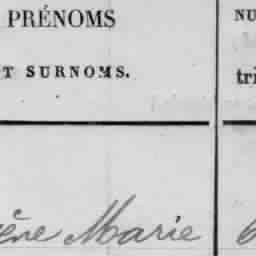 PRÉNOMS NU
T SURNOMS.
tri
ène Marie